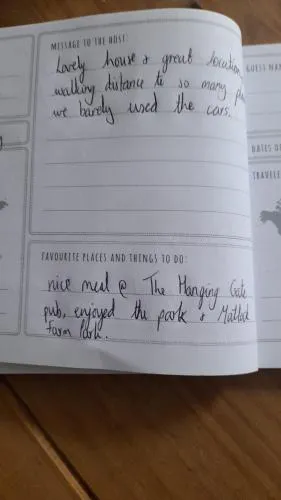 MESSAGE TO THE HOST:
Lovely house & great location,
walking distance to so many
we barely used the cars.
FAVOURITE PLACES AND THINGS TO DO:
nice meal @ The Hanging Gate
pub, enjoyed the park & Matlock
Farm Park.
GUEST NA
DATES O
TRAVELE